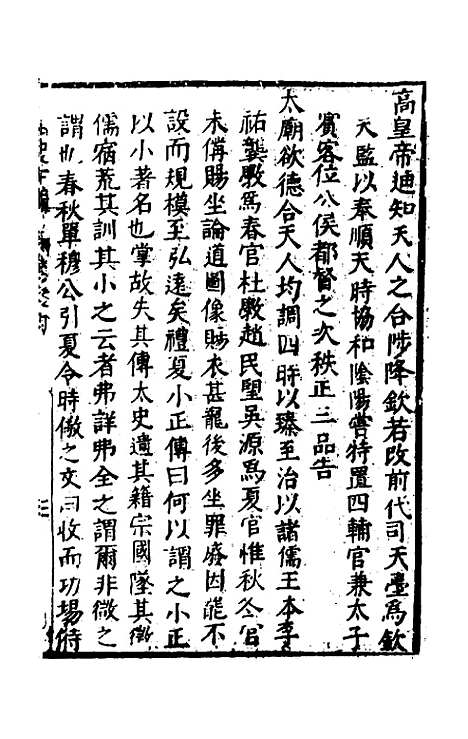 高皇帝通知天人之合陟降欽若改前代司天臺爲欽
天監以奉順天時協和陰陽嘗特置四輔官兼太子
賓客位公侯都督之次秩正三品告
太廟欲德合天人均調四時以臻至治以諸儒王本李
祐龔斆爲春官杜斆趙民望吳源爲夏官惟秋冬官
未備賜坐論道圖像賜衣甚寵後多坐罪廢因罷不
設而規模至弘遠矣禮夏小正傳曰何以謂之小正
以小著名也掌故失其傳太史遺其籍宗國墜其徵
儒宿荒其訓其小之云者弗詳弗全之謂爾非微之
謂也春秋單穆公引夏令時儆之文曰收而功場偫